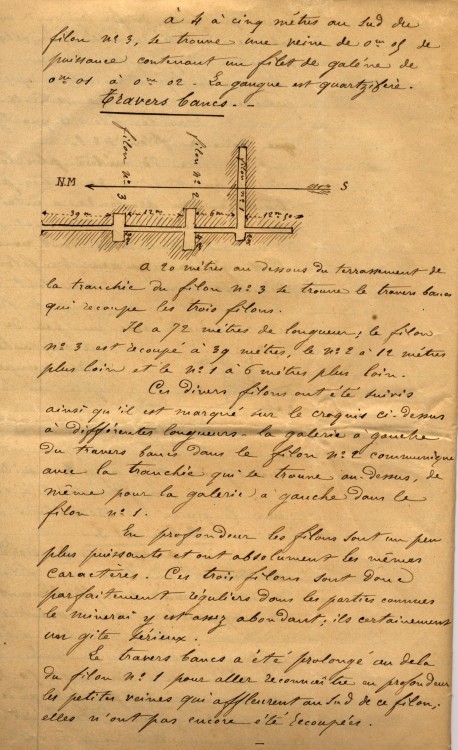 à 4 à cinq mètres au sud du
filon nº 3, se trouve une veine de 0m 05 de
puissance contenant un filet de galène de
0m 01 à 0m 02. La gangue est quartzifère.
Travers bancs. -
filon nº 3
filon nº 2
filon nº 1
N.M
S
39 m
12 m
6 m
12m 50
A 20 mètres au dessous du terrassement de
la tranchée du filon nº 3 se trouve le travers bancs
qui recoupe les trois filons.
Il a 72 mètres de longueur; le filon
nº 3 est recoupé à 39 mètres, le nº 2 à 12 mètres
plus loin et le nº 1 à 6 mètres plus loin.
Ces divers filons ont été suivis
ainsi qu'il est marqué sur le croquis ci-dessus
à différentes longueurs - la galerie à gauche
du travers bancs dans le filon nº 2 communique
avec la tranchée qui se trouve au-dessus, de
même pour la galerie à gauche dans le
filon nº 1.
En profondeur les filons sont un peu
plus puissants et ont absolument les mêmes
caractères. Ces trois filons sont donc
parfaitement réguliers dans les parties connues
le minerai y est assez abondant; ils certainement
un gîte sérieux.
Le travers bancs a été prolongé au delà
du filon nº 1 pour aller reconnaître en profondeur
les petites veines qui affleurent au sud de ce filon;
elles n'ont pas encore été recoupées.